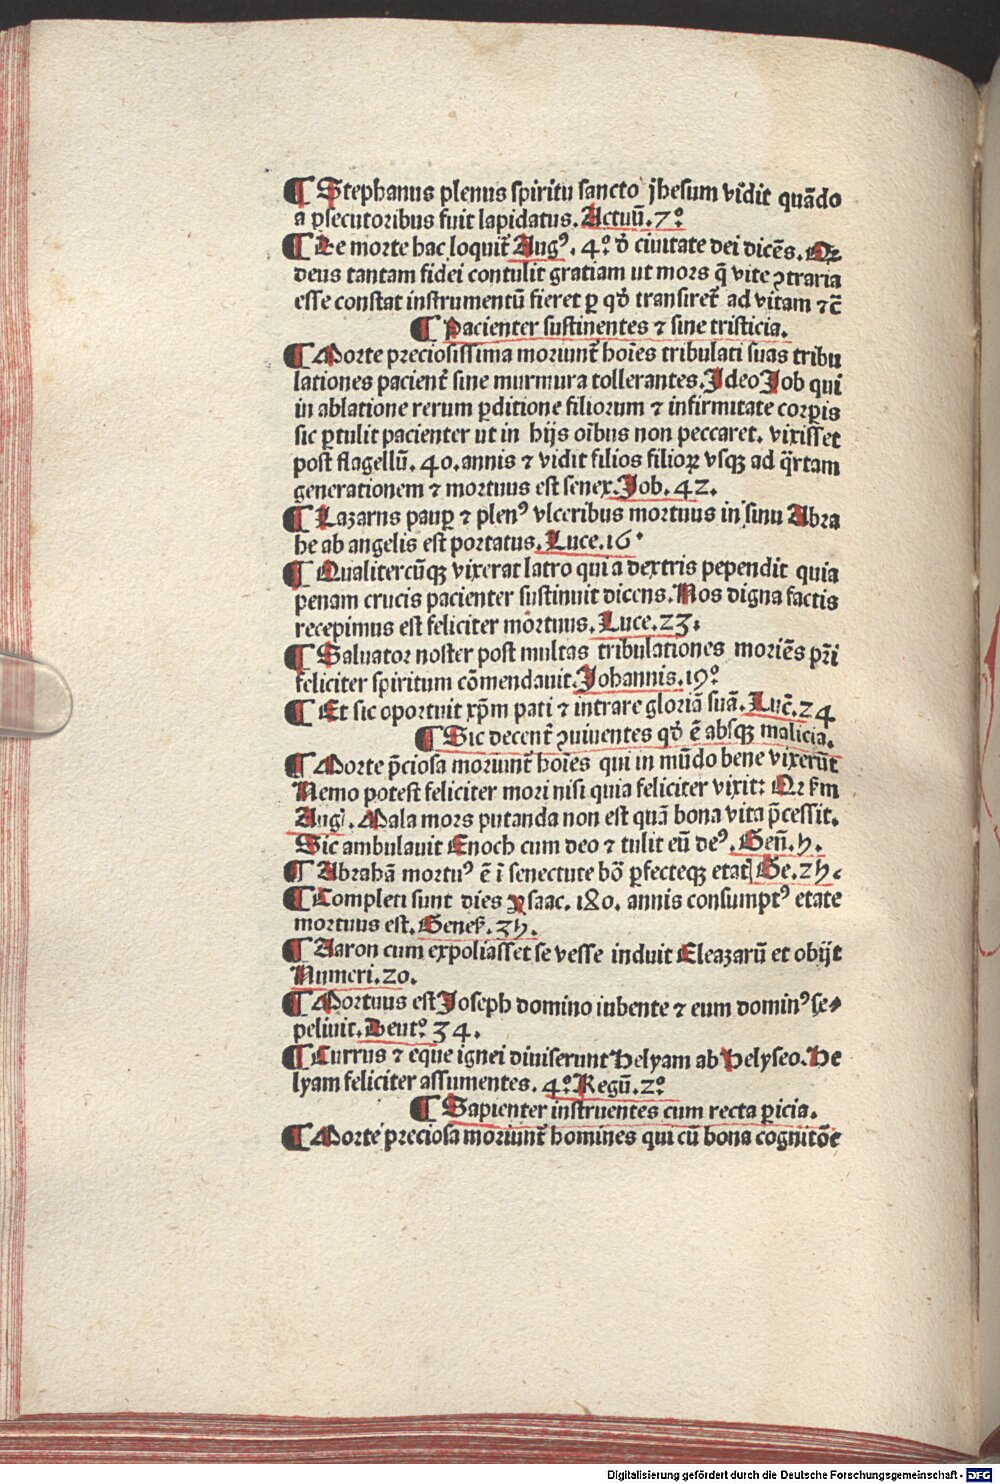 ¶ Stephanus plenus spiritu sancto jhesum vidit quādo
a ꝑsecutoribus fuit lapidatus. Actuū. 7º
¶ De morte hac loquit᷑ Augꝰ. 4º dꝰ ciuitate dei dicēs. Qꝛ
deus tantam fidei contulit gratiam ut mors q̄ vite ꝯtraria
esse constat instrumentū fieret ꝑ qd̓ transiret᷑ ad vitam ⁊c̄
¶ Pacienter sustinentes ⁊ sine tristicia.
¶ Morte preciosissima moriunt᷑ hoīes tribulati suas tribu
lationes pacient᷑ sine murmura tollerantes. Ideo Job qui
in ablatione rerum ꝑditione filiorum ⁊ infirmitate corꝑis
sic ꝑtulit pacienter ut in hijs oībus non peccaret. vixisset
post flagellū. 40. annis ⁊ vidit filios filioꝝ vsqꝫ ad q̈rtam
generationem ⁊ mortuus est senex. Job. 42.
¶ Lazarus pauꝑ ⁊ plenꝰ vlceribus mortuus in sinu Abra
he ab angelis est portatus. Luce. 16.
¶ Qualitercūqꝫ vixerat latro qui a dextris pependit quia
penam crucis pacienter sustinuit dicens. Nos digna factis
recepimus est feliciter mortuus. Luce. 23.
¶ Saluator noster post multas tribulationes moriēs pr̄i
feliciter spiritum cōmendauit. Johannis. 19º
¶ Et sic oportuit xp̄m pati ⁊ intrare gloriā suā. Luc̄. 24
¶ Sic decent᷑ ꝯuiuentes qd̓ ē absqꝫ malicia.
¶ Morte p̄ciosa moriunt᷑ hoīes qui in mūdo bene vixerūt
Nemo potest feliciter mori nisi quia feliciter vixit: Qꝛ ẜm
Augꝰ. Mala mors putanda non est quā bona vita p̄cessit.
Sic ambulauit Enoch cum deo ⁊ tulit eū deꝰ. Geñ. 5.
¶ Abrahā mortuꝰ ē ī senectute bō ꝑfecteqꝫ etatꝭ Ge. 25.
¶ Completi sunt dies Ysaac. 180. annis consumptꝰ etate
mortuus est. Geneẜ. 35.
¶ Aaron cum expoliasset se vesse induit Eleazarū et obijt
Numeri. 20.
¶ Mortuus est Joseph domino iubente ⁊ eum dominꝰ se⸗
peliuit. Deutº 34.
¶ Currus ⁊ eque ignei diuiserunt Helyam ab Helyseo. He
lyam feliciter assumentes. 4º Regū. 2º
¶ Sapienter instruentes cum recta ꝑicia.
¶ Morte preciosa moriunt᷑ homines qui cū bona cognitōe
Digitalisierung gefördert durch die Deutsche Forschungsgemeinschaft - DFG